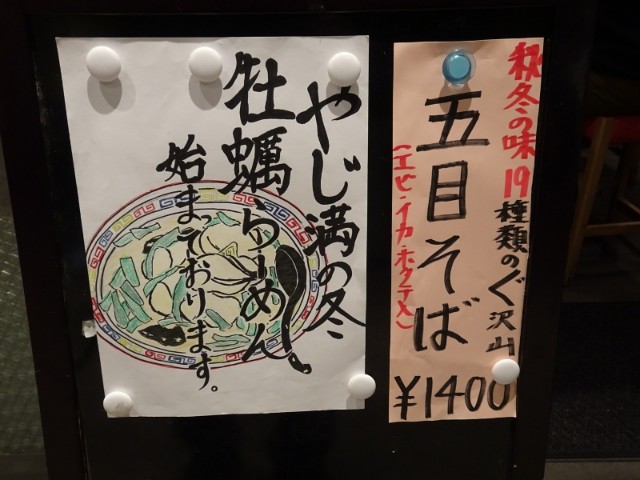 やじ満の冬
牡蠣らーめん
始まっております。
秋冬の味19種類のぐ沢山
五目そば
(エビ・イカ・ホタテメ)
¥1400